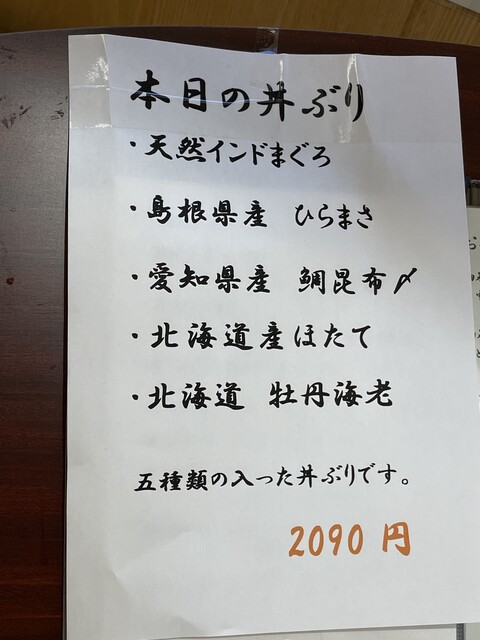 本日の丼ぶり
・天然インドまぐろ
・島根県産 ひらまさ
・愛知県産 鯛昆布〆
・北海道産ほたて
・北海道 牡丹海老
五種類の入った丼ぶりです。
2090 円